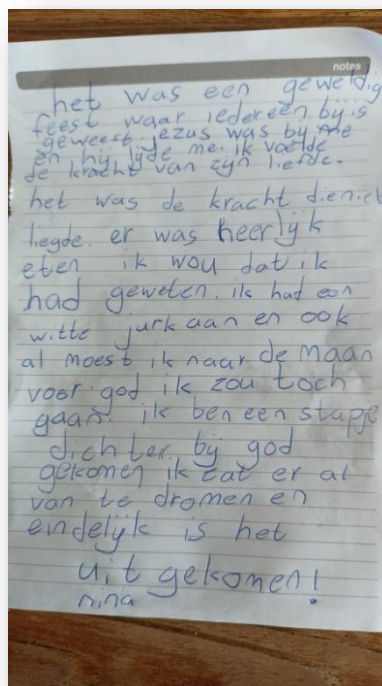 notes
het was een geweldig
feest waar iedereen bij is
geweest. jezus was bij me
en hij lijde me. ik voelde
de kracht van zijn liefde.
het was de kracht die niet
liegde. er was heerlijk
eten ik wou dat ik
had geweten. ik had een
witte jurk aan en ook
al moest ik naar de maan
voor god ik zou toch
gaan. ik ben een stapje
dichter bij god
gekomen ik zat er al
van te dromen en
eindelijk is het
uit gekomen!
nina